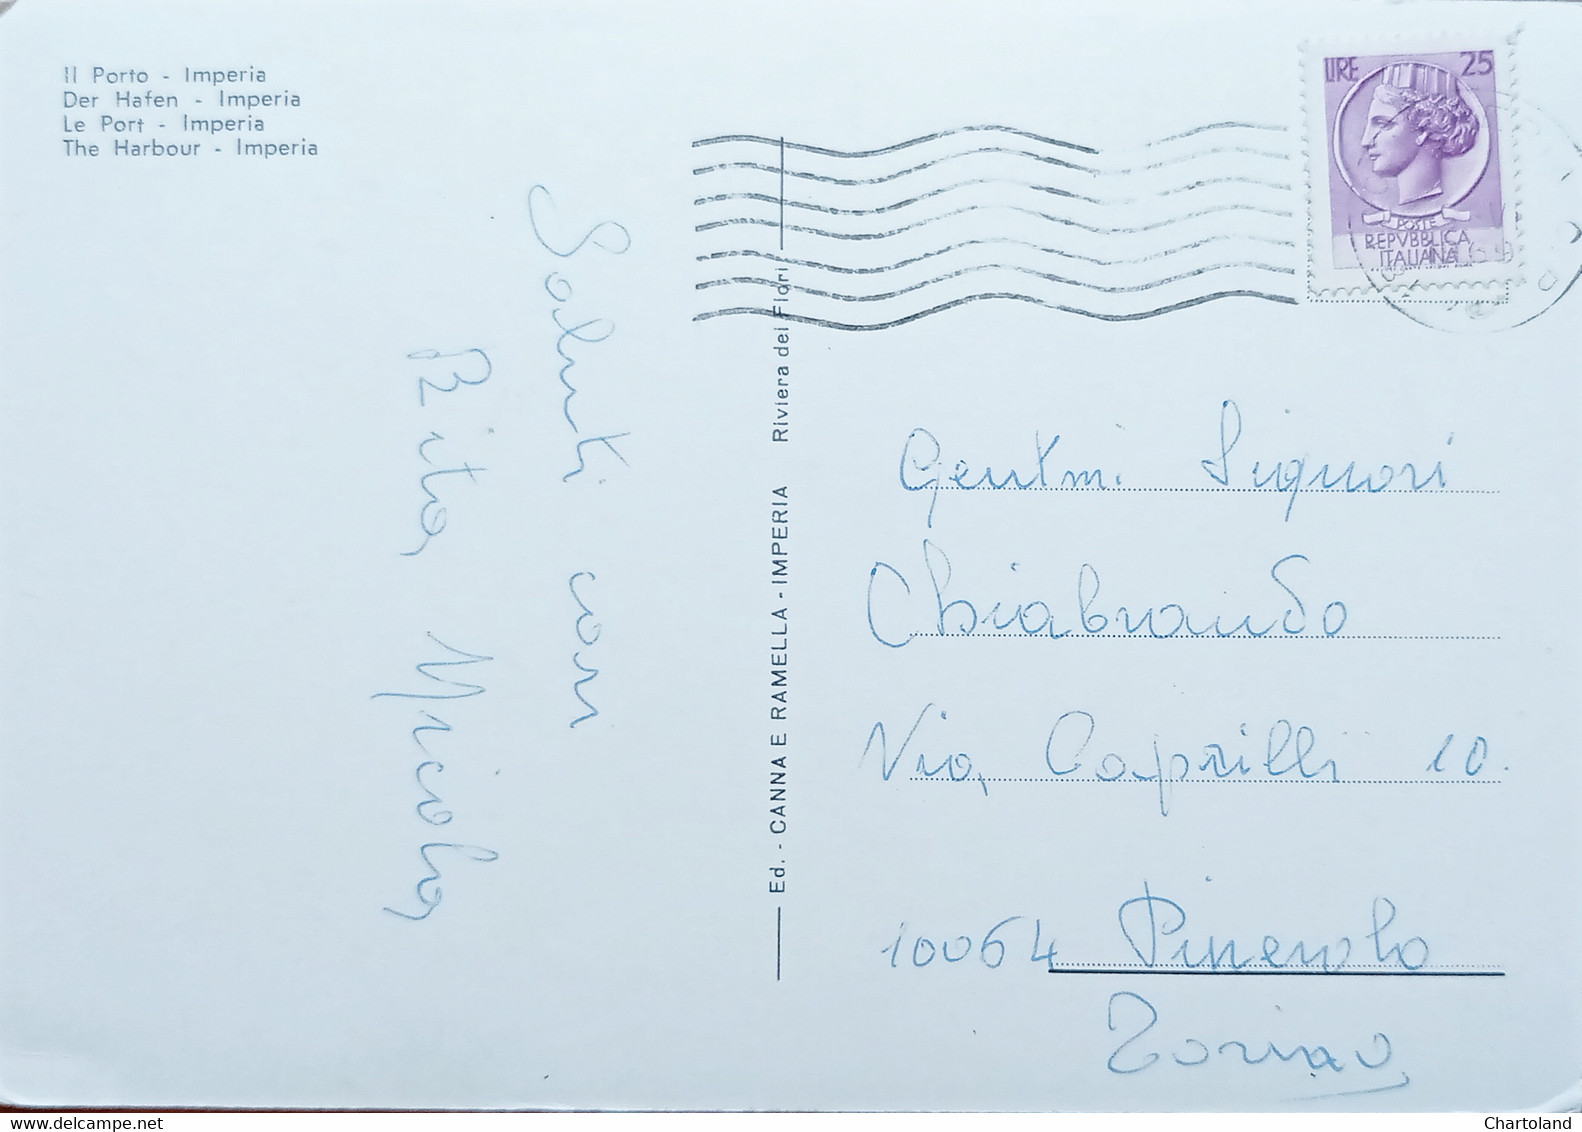 Il Porto - Imperia
Der Hafen - Imperia
Le Port - Imperia
The Harbour - Imperia
LIRE 25
POSTE
REPVBBLICA
ITALIANA
Saluti con
Rita Nicola
Ed. - CANNA E RAMELLA - IMPERIA Riviera dei Fiori
Gentmi. Signori
Chiabrando
Via Caprilli 10.
10064 Pinerolo
Torino
Chartoland
delcampe.net